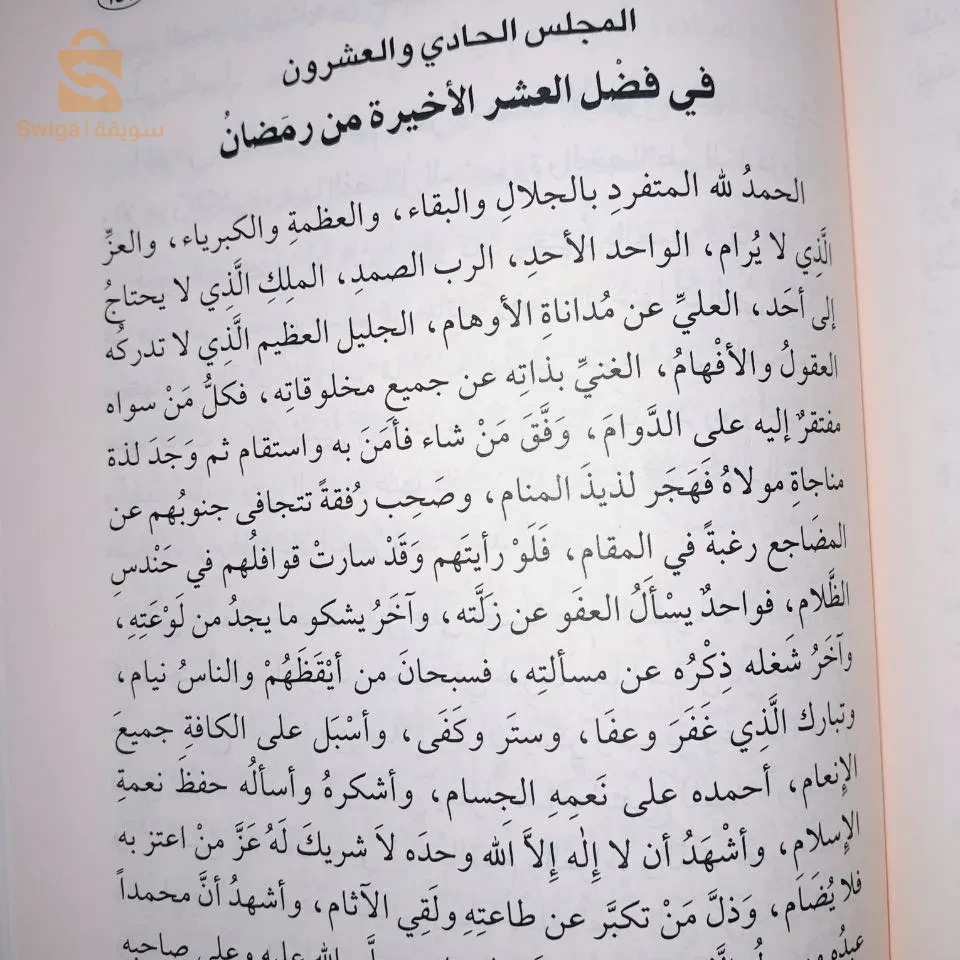 سويقة | Swiga
المجلس الحادي والعشرون
في فضْل العشر الأخيرة من رمَضانُ
الحمدُ لله المتفردِ بالجلالِ والبقاء، والعظمةِ والكبرياء، والعزِّ
الَّذِي لا يُرام، الواحد الأحدِ، الرب الصمدِ، الملِكِ الَّذِي لا يحتاجُ
إلى أحَد، العليِّ عن مُداناةِ الأوهام، الجليل العظيم الَّذِي لا تدركُه
العقولُ والأفْهامُ، الغنيِّ بذاتِه عن جميع مخلوقاتِه، فكلُّ مَنْ سواه
مفتقرٌ إليه على الدَّوامَ، وَفَّقَ مَنْ شاء فأمَنَ به واستقام ثم وَجَدَ لذة
مناجاةِ مولاهُ فَهَجَر لذيذَ المنام، وصَحِب رُفقةً تتجافى جنوبُهم عن
المضَاجع رغبةً في المقام، فَلَوْ رأيتَهم وَقَدْ سارتْ قوافلُهم في حَنْدسِ
الظَّلام، فواحدٌ يسْألُ العفَو عن زلَّته، وآخَرُ يشكو ما يجدُ من لَوْعَتِهِ،
وآخَرُ شَغله ذِكْرُه عن مسألتِه، فسبحانَ من أيْقَظَهُمْ والناسُ نيام،
وتبارك الَّذِي غَفَرَ وعفَا، وستَر وكَفَى، وأسْبَل على الكافةِ جميعَ
الإنعام، أحمده على نَعمِهِ الجِسام، وأشكرهُ وأسألُه حفظَ نعمةِ
الإسلام، وأشْهَدُ أن لا إلٰه إلاَّ الله وحدَه لاَ شريكَ لَهُ عَزَّ منْ اعتز به
فلا يُضَام، وَذلَّ مَنْ تكبَّر عن طاعتِهِ ولَقِي الآثام، وأشهدُ أنَّ محمداً
عبدُه الله عليه وعلى صاحبه